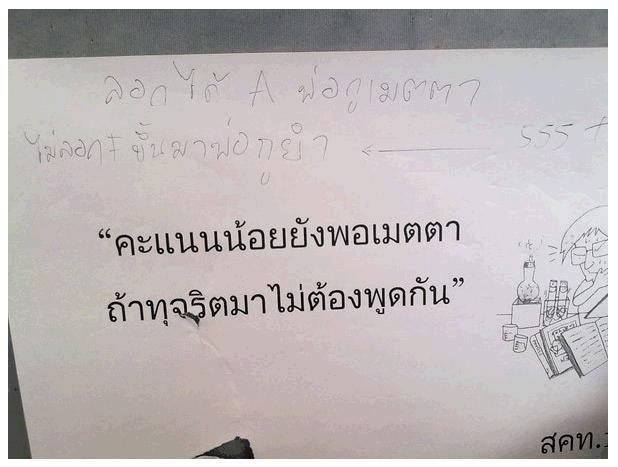 ลอกได้ A พ่อกูเมตตา
ไม่ลอก F ขึ้นมาพ่อกูยำ ← 555 +
“คะแนนน้อยยังพอเมตตา
ถ้าทุจริตมาไม่ต้องพูดกัน”
สคท.